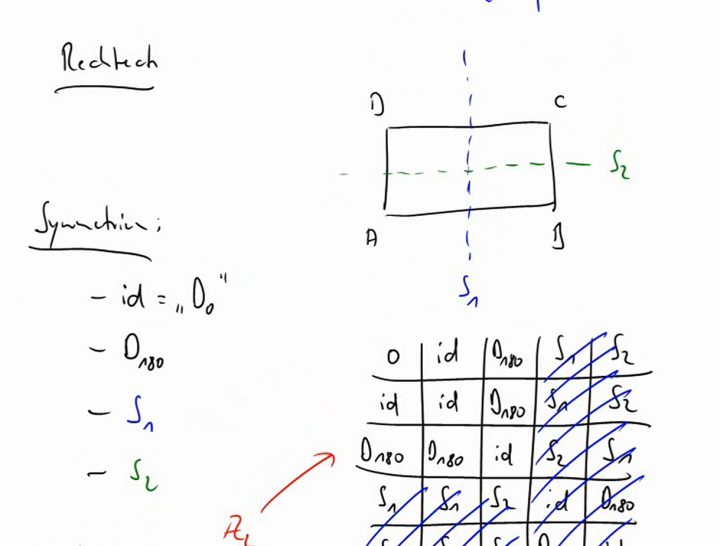 Rechteck
D C
S2
A B
S1
Symmetrien:
- id = „D0"
- D180
- S1
- S2
o | id | D180 | S1 | S2
id | id | D180 | S1 | S2
D180 | D180 | id | S2 | S1
S1 | S1 | S2 | id | D180